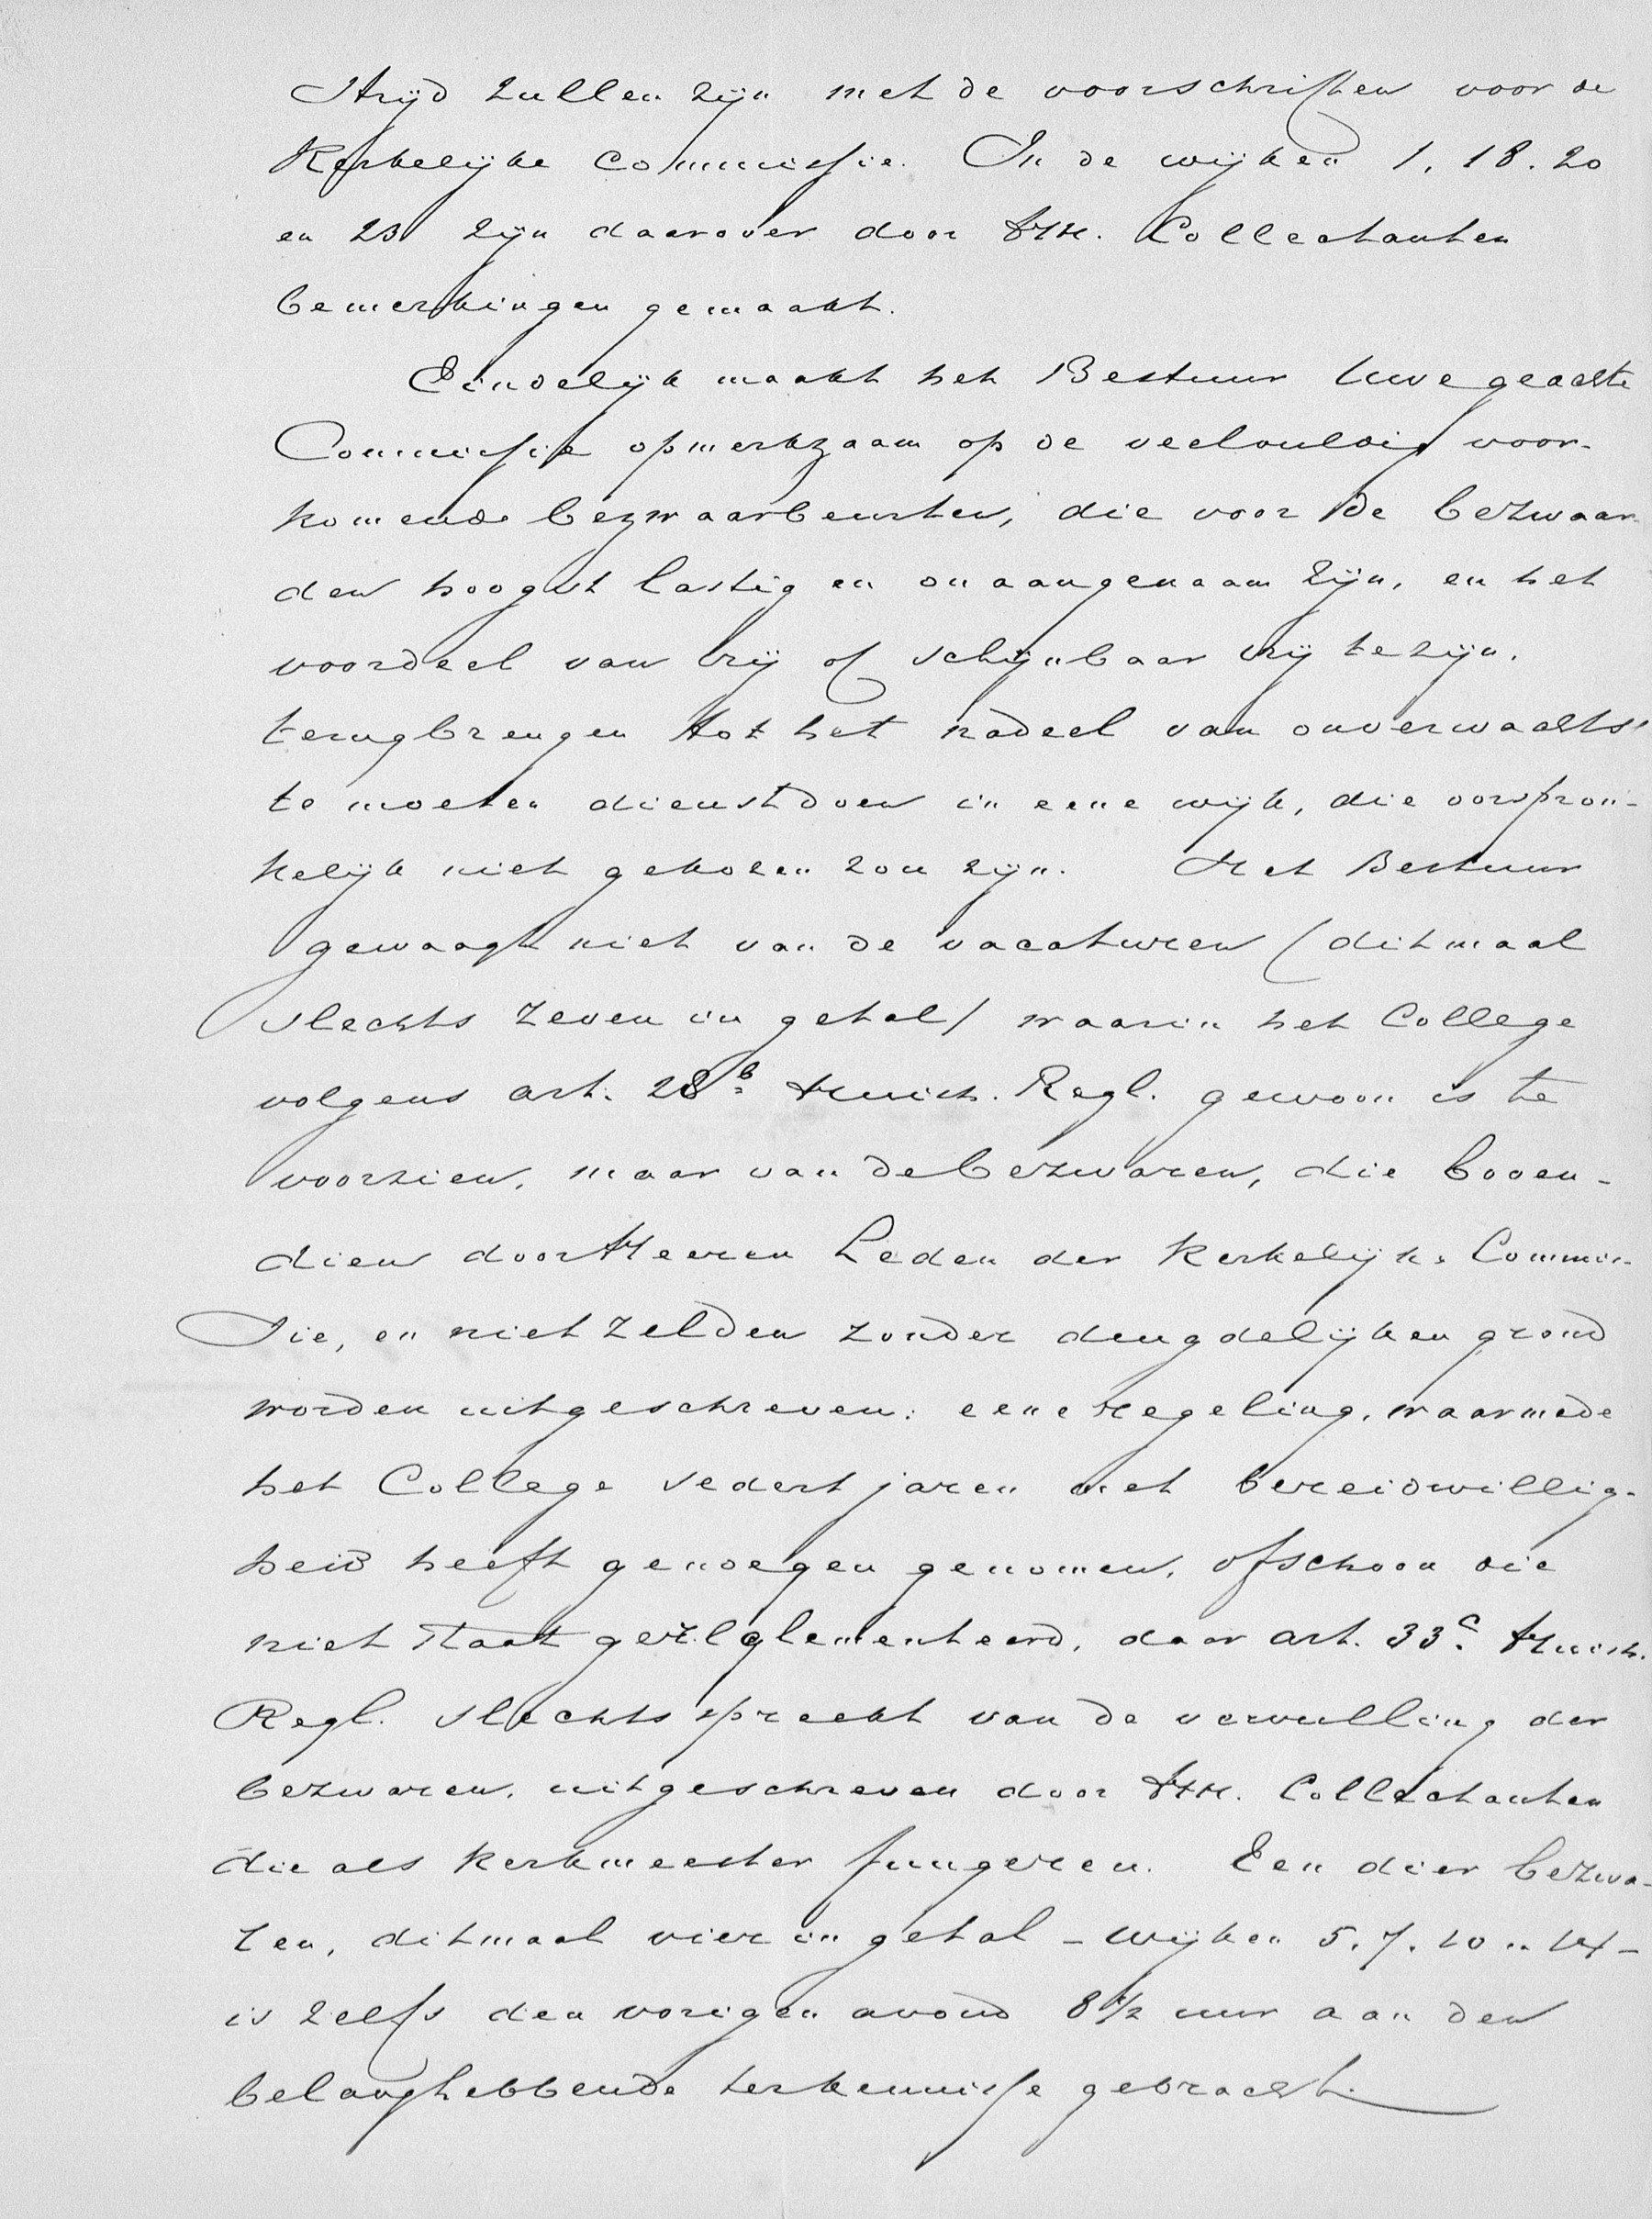 strijd zullen zijn met de voorschriften voor de
Kerkelijke Commissie. In de wijken 1, 18. 20
en 23 zijn daarover door HH. Collectanten
bemerkingen gemaakt.
Eindelijk maakt het Bestuur Uwe geachte
Commissie opmerkzaam op de veelvuldig voor-
komende bezwaarbeurten, die voor de bezwaar-
den hoogst lastig en onaangenaam zijn, en het
voordeel van vrij of schijnbaar vrij te zijn,
terugbrengen tot het nadeel van onverwachts
te moeten dienstdoen in eene wijk, die oorspron-
kelijk niet gekozen zou zijn. Het Bestuur
gewaagt niet van de vacaturen (ditmaal
slechts zeven in getal) waarin het College
volgens art. 28b Huish. Regl. gewoon is te
voorzien, maar van de bezwaren, die boven-
dien door Heeren Leden der Kerkelijke Commis-
sie, en niet zelden zonder deugdelijken grond
worden uitgeschreven: eene regeling, waarmede
het College sedert jaren met bereidwillig-
heid heeft genoegen genomen, ofschoon die
niet staat gereglementeerd, daar art. 33c Huish.
Regl. slechts spreekt van de vervulling der
bezwaren, uitgeschreven door HH. Collectanten
die als kerkmeester fungeren. Een dier bezwa-
ren, ditmaal vier in getal - wijken 5. 7. 10 en 14 -
is zelfs den vorigen avond 8 1/2 uur aan den
belanghebbende terkennisse gebracht.